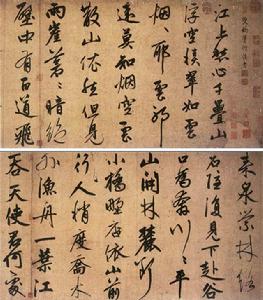 江上愁心千疊山
浮空積翠如雲
烟山耶雲耶
遠莫知烟空雲
散山依然但見
兩崖蒼〻暗絕
壑中有百道飛
来泉縈林絡
石隱復見下赴谷
口為奔川〻平
山開林麓斷
小橋野店依山前
行人稍度喬木
外漁舟一葉江
吞天使君何處